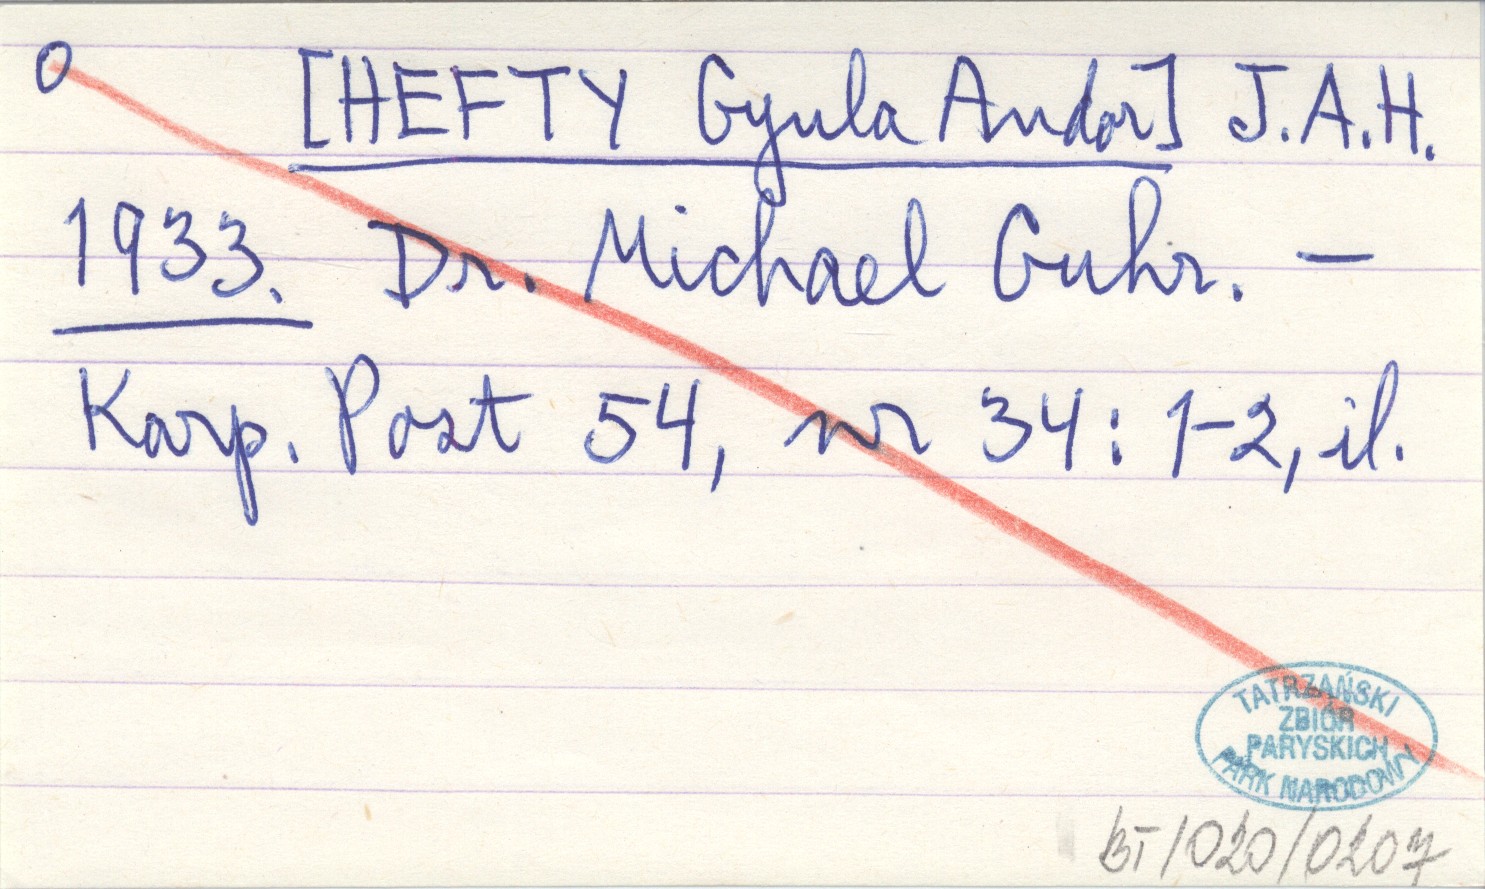 O [HEFTY Gyula Andor] J.A.H.
1933. Dr. Michael Guhr. –
Karp. Post 54, nr 34: 1-2, il.
TATRZAŃSKI
ZBIÓR
PARYSKICH
PARK NARODOWY
BT/020/0207